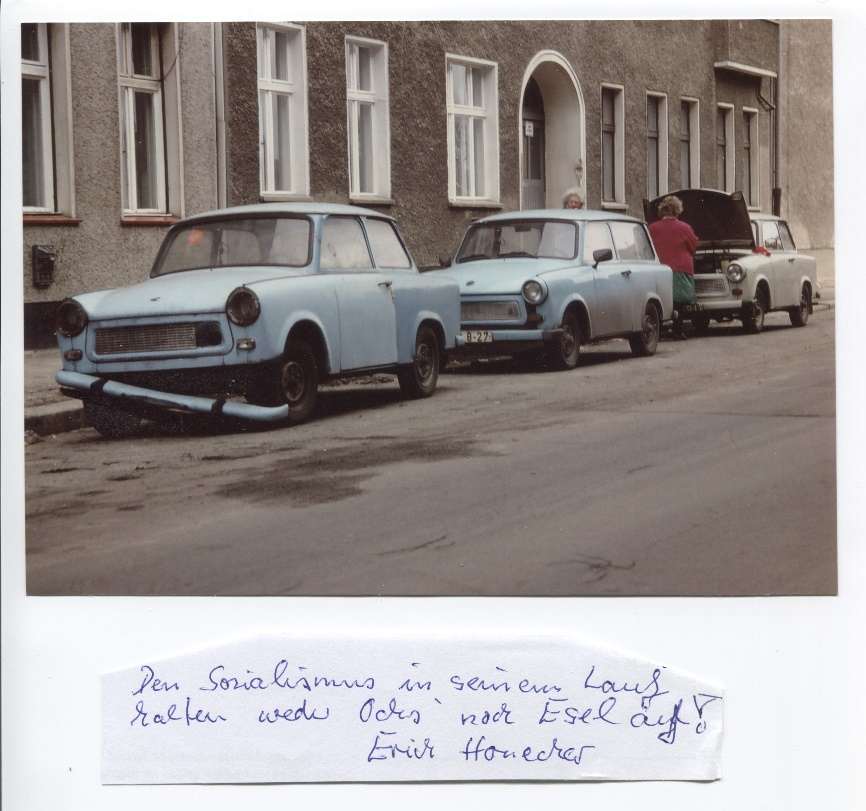 B-27
Den Sozialismus in seinem Lauf
halten weder Ochs' noch Esel auf!
Erich Honecker